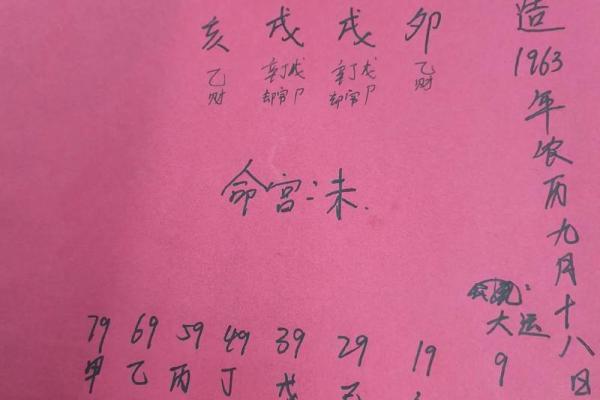 造
1963年农历九月十八日
卯 戌 戌 亥
乙 辛丁戊 辛丁戊 乙
财 却官尸 却官尸 财
命宫:未.
大运
9 19 29 39 49 59 69 79
戊 丁 丙 乙 甲